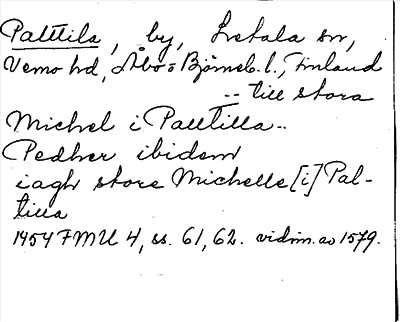 Palttila, by, Letala sn,
Vemo hd, Åbo=Björneb. l., Finland
-- till stora
Michel i Palttilla--
Pedher ibidem
iagh store Michelle [i] Pal-
tilla
1454 FMU 4, ss. 61, 62. vidim. av 1579.